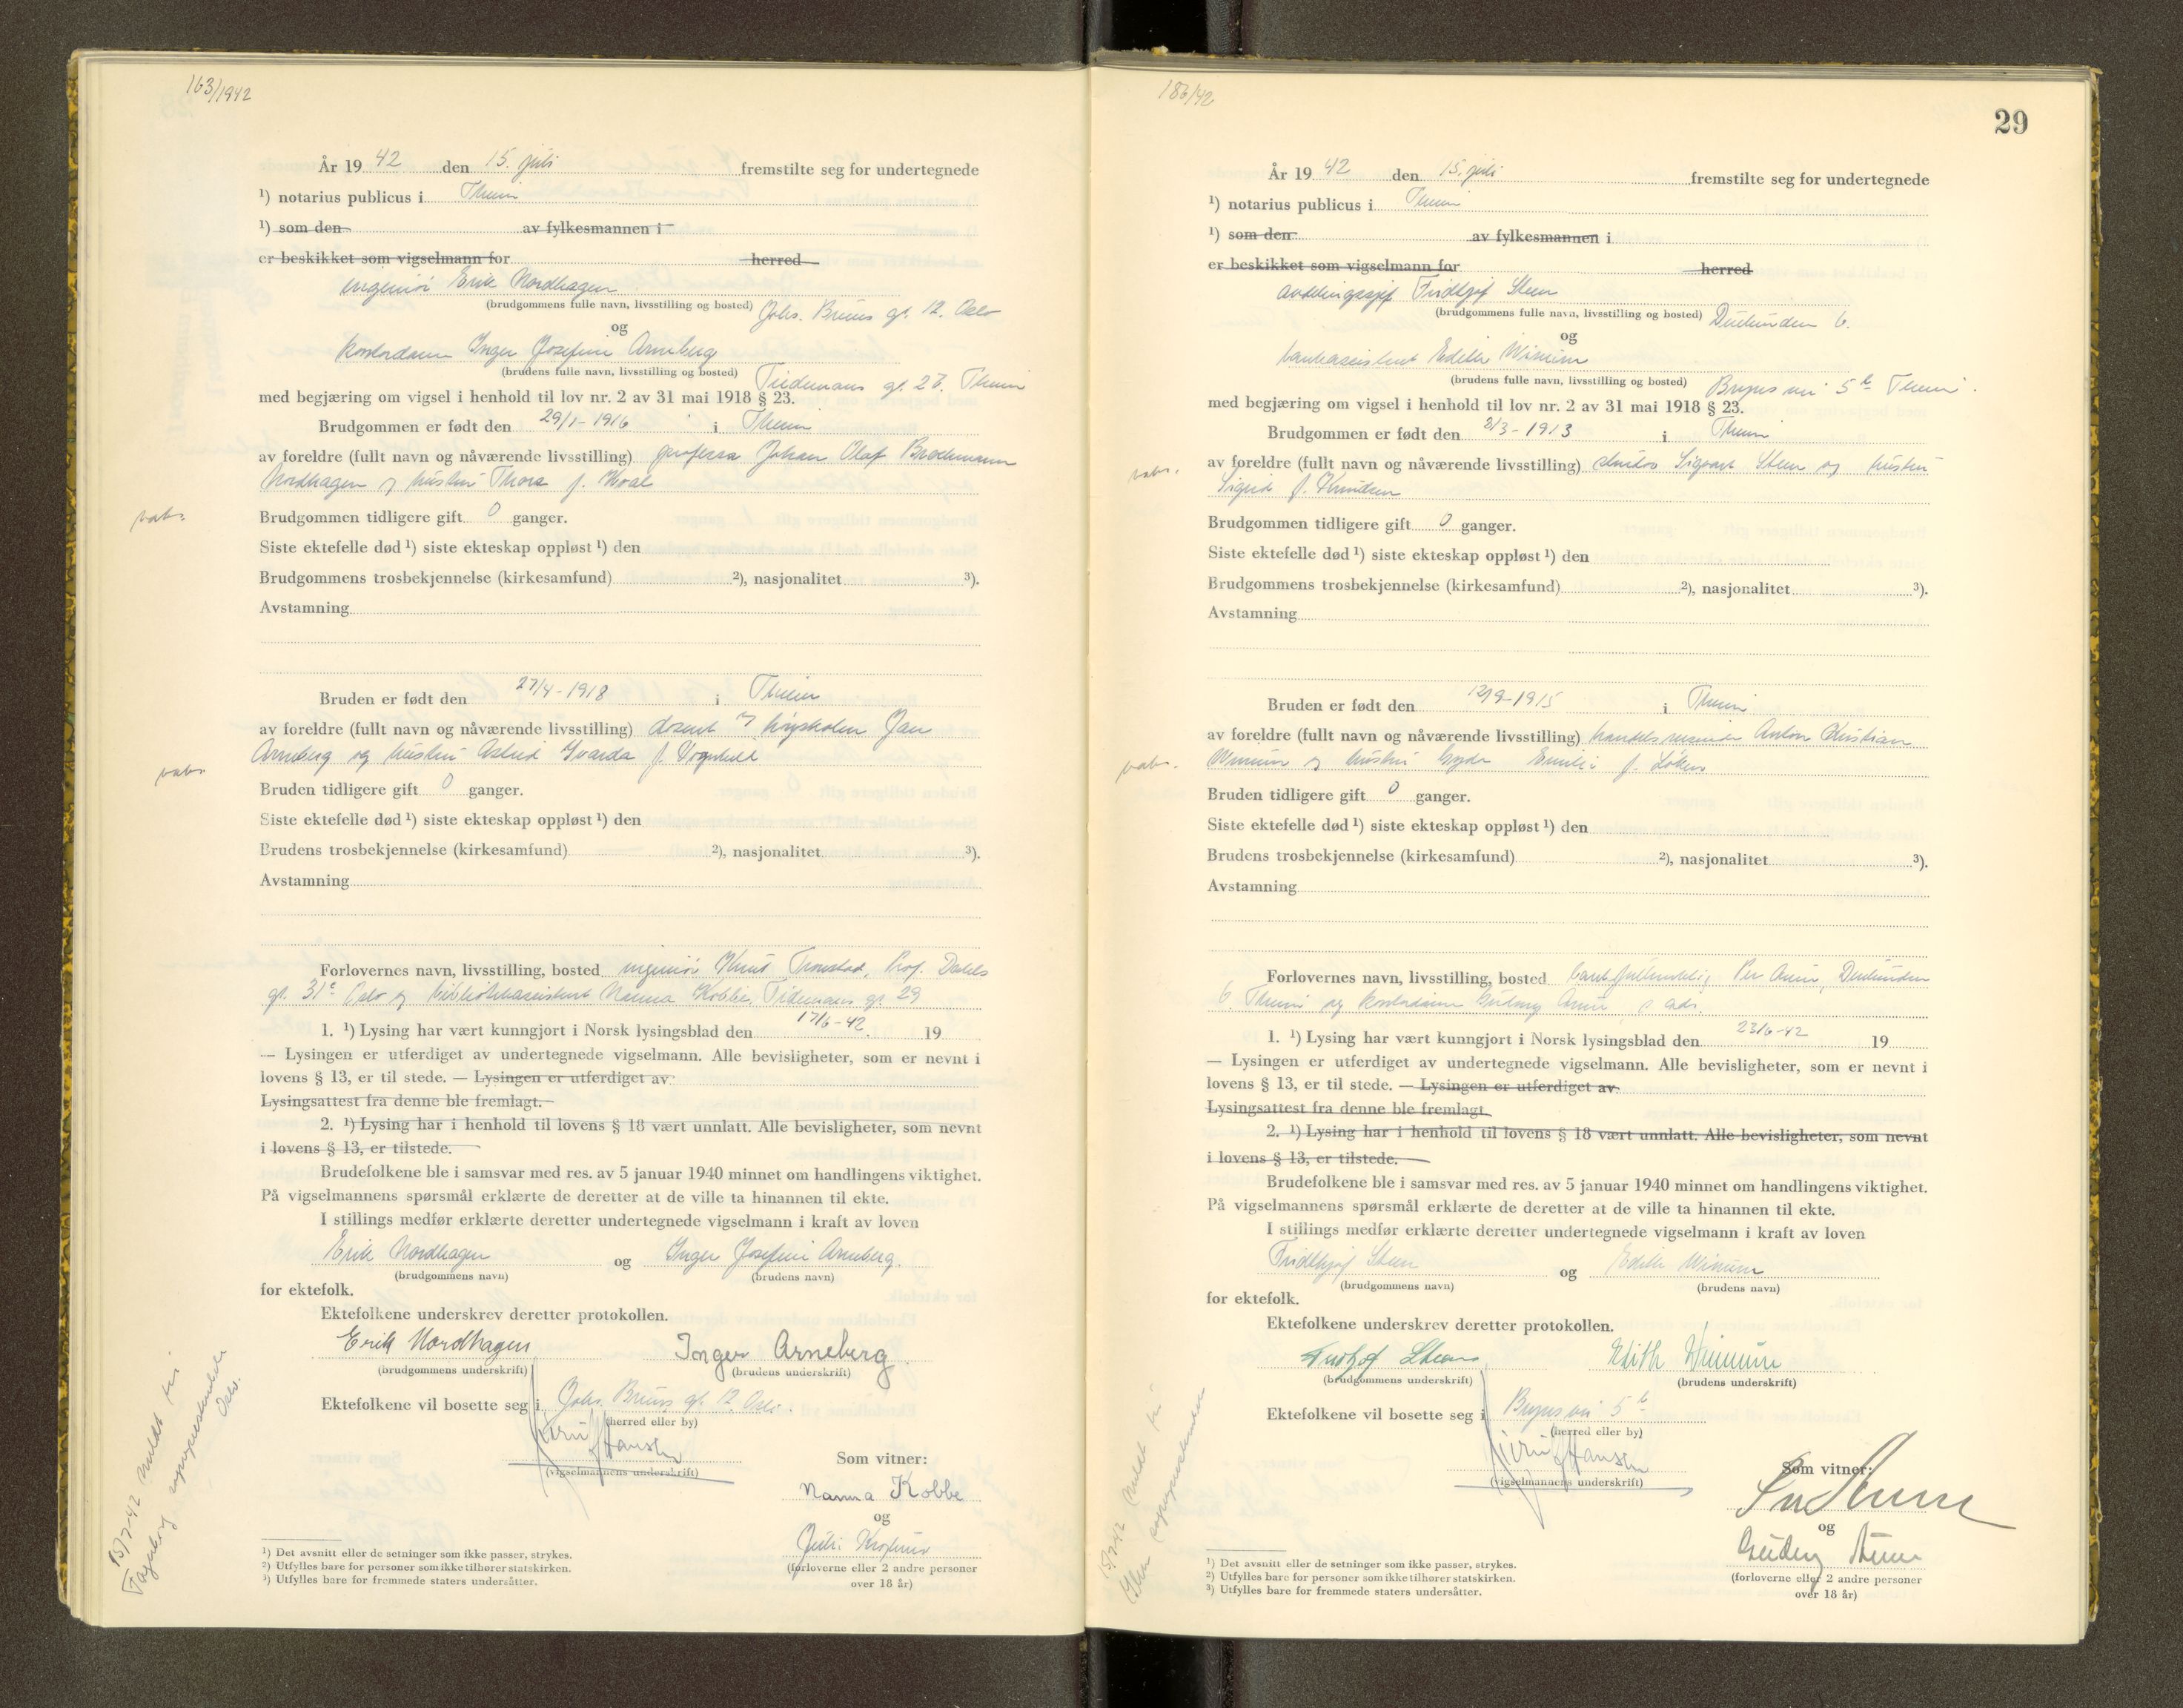 163/1942
År 19 42 den 15. juli fremstilte seg for undertegnede
¹) notarius publicus i Theim
¹) som den av fylkesmannen i
er beskikket som vigselmann for herred
ingeniør Erik Nordhagen
(brudgommens fulle navn, livsstilling og bosted) Johs. Bruns gt. 12. Oslo
og
kontordame Inger Josefine Arneberg
(brudens fulle navn, livsstilling og bosted) Tiedemans gt. 27. Theim
med begjæring om vigsel i henhold til lov nr. 2 av 31 mai 1918 § 23.
Brudgommen er født den 29/1-1916 i Theim
av foreldre (fullt navn og nåværende livsstilling) professor Johan Olaf Brochmann
Nordhagen og hustru Thora f.
vabs.
Brudgommen tidligere gift 0 ganger.
Siste ektefelle død ¹) siste ekteskap oppløst ¹) den
Brudgommens trosbekjennelse (kirkesamfund) ²), nasjonalitet ³).
Avstamning
Bruden er født den 27/4-1918 i Theim
av foreldre (fullt navn og nåværende livsstilling) dosent v høyskolen Jan
Arneberg og hustru Astrid f.
vabs.
Bruden tidligere gift 0 ganger.
Siste ektefelle død ¹) siste ekteskap oppløst ¹) den
Brudens trosbekjennelse (kirkesamfund) ²), nasjonalitet ³).
Avstamning
Forlovernes navn, livsstilling, bosted ingeniør Knut Tronstad, Prof. Dahls
gt. 31 c Oslo og bibliotekassistent Nanna Kobbe, Tidemans gt 29
1. ¹) Lysing har vært kunngjort i Norsk lysingsblad den 17/6-42. 19
— Lysingen er utferdiget av undertegnede vigselmann. Alle bevisligheter, som er nevnt i
lovens § 13, er til stede. — Lysingen er utferdiget av
Lysingsattest fra denne ble fremlagt.
2. ¹) Lysing har i henhold til lovens § 18 vært unnlatt. Alle bevisligheter, som nevnt
i lovens § 13, er tilstede.
Brudefolkene ble i samsvar med res. av 5 januar 1940 minnet om handlingens viktighet.
På vigselmannens spørsmål erklærte de deretter at de ville ta hinannen til ekte.
I stillings medfør erklærte deretter undertegnede vigselmann i kraft av loven
Erik Nordhagen og Inger Josefine Arneberg.
(brudgommens navn) (brudens navn)
for ektefolk.
Ektefolkene underskrev deretter protokollen.
Erik Nordhagen Inger Arneberg
(brudgommens underskrift) (brudens underskrift)
Ektefolkene vil bosette seg i Johs. Bruns gt. 12. Oslo.
(herred eller by)
Hansen
(vigselmannens underskrift)
Som vitner:
Nanna Kobbe
og
(forloverne eller 2 andre personer
over 18 år)
15/7-42 meldt til
Fagerborg sogneprestembede
Oslo.
¹) Det avsnitt eller de setninger som ikke passer, strykes.
²) Utfylles bare for personer som ikke tilhører statskirken.
³) Utfylles bare for fremmede staters undersåtter.
186/42
29
År 19 42 den 15. juli fremstilte seg for undertegnede
¹) notarius publicus i Theim
¹) som den av fylkesmannen i
er beskikket som vigselmann for herred
avdelingssjef Fridthjof Steen
(brudgommens fulle navn, livsstilling og bosted) 6.
og
bankassistent Edith
(brudens fulle navn, livsstilling og bosted) 5 b Theim.
med begjæring om vigsel i henhold til lov nr. 2 av 31 mai 1918 § 23.
Brudgommen er født den 2/3-1913 i Theim
av foreldre (fullt navn og nåværende livsstilling) Sigvart Steen og hustru
vabs.
Sigrid f. Knudsen
Brudgommen tidligere gift 0 ganger.
Siste ektefelle død ¹) siste ekteskap oppløst ¹) den
Brudgommens trosbekjennelse (kirkesamfund) ²), nasjonalitet ³).
Avstamning
Bruden er født den 12/9-1915 i Theim
av foreldre (fullt navn og nåværende livsstilling) handelsreisende Anton Christian
vabs.
og hustru Gyda Emilie f. Løken
Bruden tidligere gift 0 ganger.
Siste ektefelle død ¹) siste ekteskap oppløst ¹) den
Brudens trosbekjennelse (kirkesamfund) ²), nasjonalitet ³).
Avstamning
Forlovernes navn, livsstilling, bosted Per
6. Theim og kontordame Gudny s. ads.
1. ¹) Lysing har vært kunngjort i Norsk lysingsblad den 23/6-42 19
— Lysingen er utferdiget av undertegnede vigselmann. Alle bevisligheter, som er nevnt i
lovens § 13, er til stede. — Lysingen er utferdiget av
Lysingsattest fra denne ble fremlagt
2. ¹) Lysing har i henhold til lovens § 18 vært unnlatt. Alle bevisligheter, som nevnt
i lovens § 13, er tilstede.
Brudefolkene ble i samsvar med res. av 5 januar 1940 minnet om handlingens viktighet.
På vigselmannens spørsmål erklærte de deretter at de ville ta hinannen til ekte.
I stillings medfør erklærte deretter undertegnede vigselmann i kraft av loven
Fridthjof Steen og Edith
(brudgommens navn) (brudens navn)
for ektefolk.
Ektefolkene underskrev deretter protokollen.
Steen Edith
(brudgommens underskrift) (brudens underskrift)
Ektefolkene vil bosette seg i 5 b
(herred eller by)
Hansen
(vigselmannens underskrift)
Som vitner:
og
(forloverne eller 2 andre personer
over 18 år)
15/7-42 meldt til
sogneprestembede
¹) Det avsnitt eller de setninger som ikke passer, strykes.
²) Utfylles bare for personer som ikke tilhører statskirken.
³) Utfylles bare for fremmede staters undersåtter.